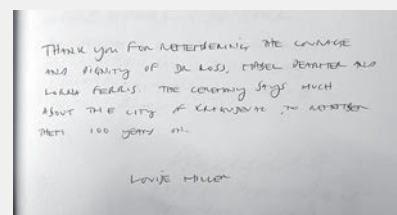 THANK YOU FOR REMEMBERING THE COURAGE
AND DIGNITY OF DR ROSS, MABEL DEARMER AND
LORNA FERRIS. THE CEREMONY SAYS MUCH
ABOUT THE CITY OF KRAGUJEVAC, TO REMEMBER
THEM 100 YEARS ON.
LOUISE MILLER